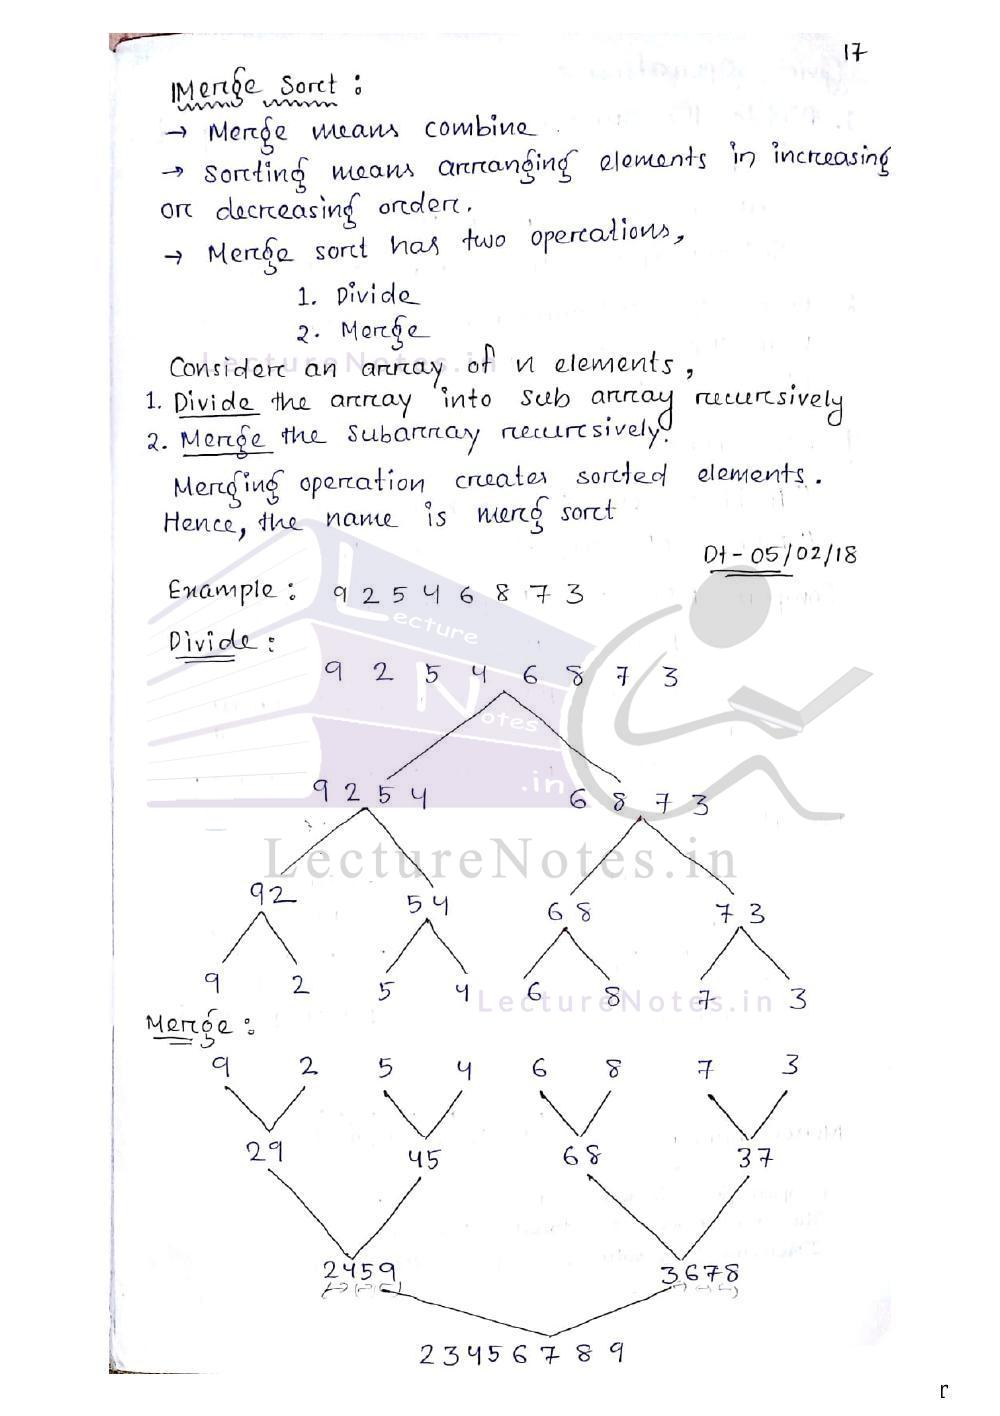 17
Merge Sort :
→ Merge means combine
→ Sorting means arranging elements in increasing
or decreasing order.
→ Merge sort has two operations,
1. Divide
2. Merge
LectureNotes.in
Consider an array of n elements,
1. Divide the array into sub array recursively
2. Merge the subarray recursively.
Merging operation creates sorted elements.
Hence, the name is merg sort
Dt - 05/02/18
Example : 9 2 5 4 6 8 7 3
Lecture
Divide :
9 2 5 4 6 8 7 3
Notes
.in
9 2 5 4 6 8 7 3
LectureNotes.in
92 54 68 73
9 2 5 4 6 8 7 3
LectureNotes.in
Merge :
9 2 5 4 6 8 7 3
29 45 68 37
2459 3678
2 3 4 5 6 7 8 9
r